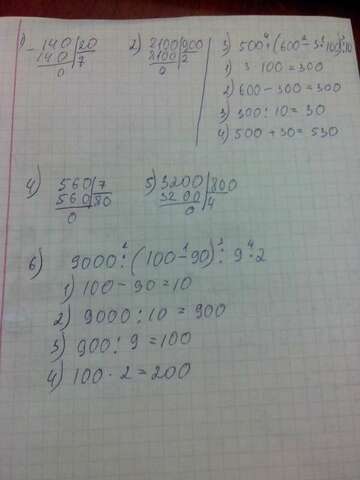 1) - 140 | 20
140 | 7
0
2) 2100 | 900
2100 | 2
0
3) 500 + (600 - 3·100) : 10
1) 3·100 = 300
2) 600 - 300 = 300
3) 300 : 10 = 30
4) 500 + 30 = 530
4) 560 | 7
560 | 80
0
5) 3200 | 800
3200 | 4
0
6) 9000 : (100 - 90) : 9 · 2
1) 100 - 90 = 10
2) 9000 : 10 = 900
3) 900 : 9 = 100
4) 100 · 2 = 200